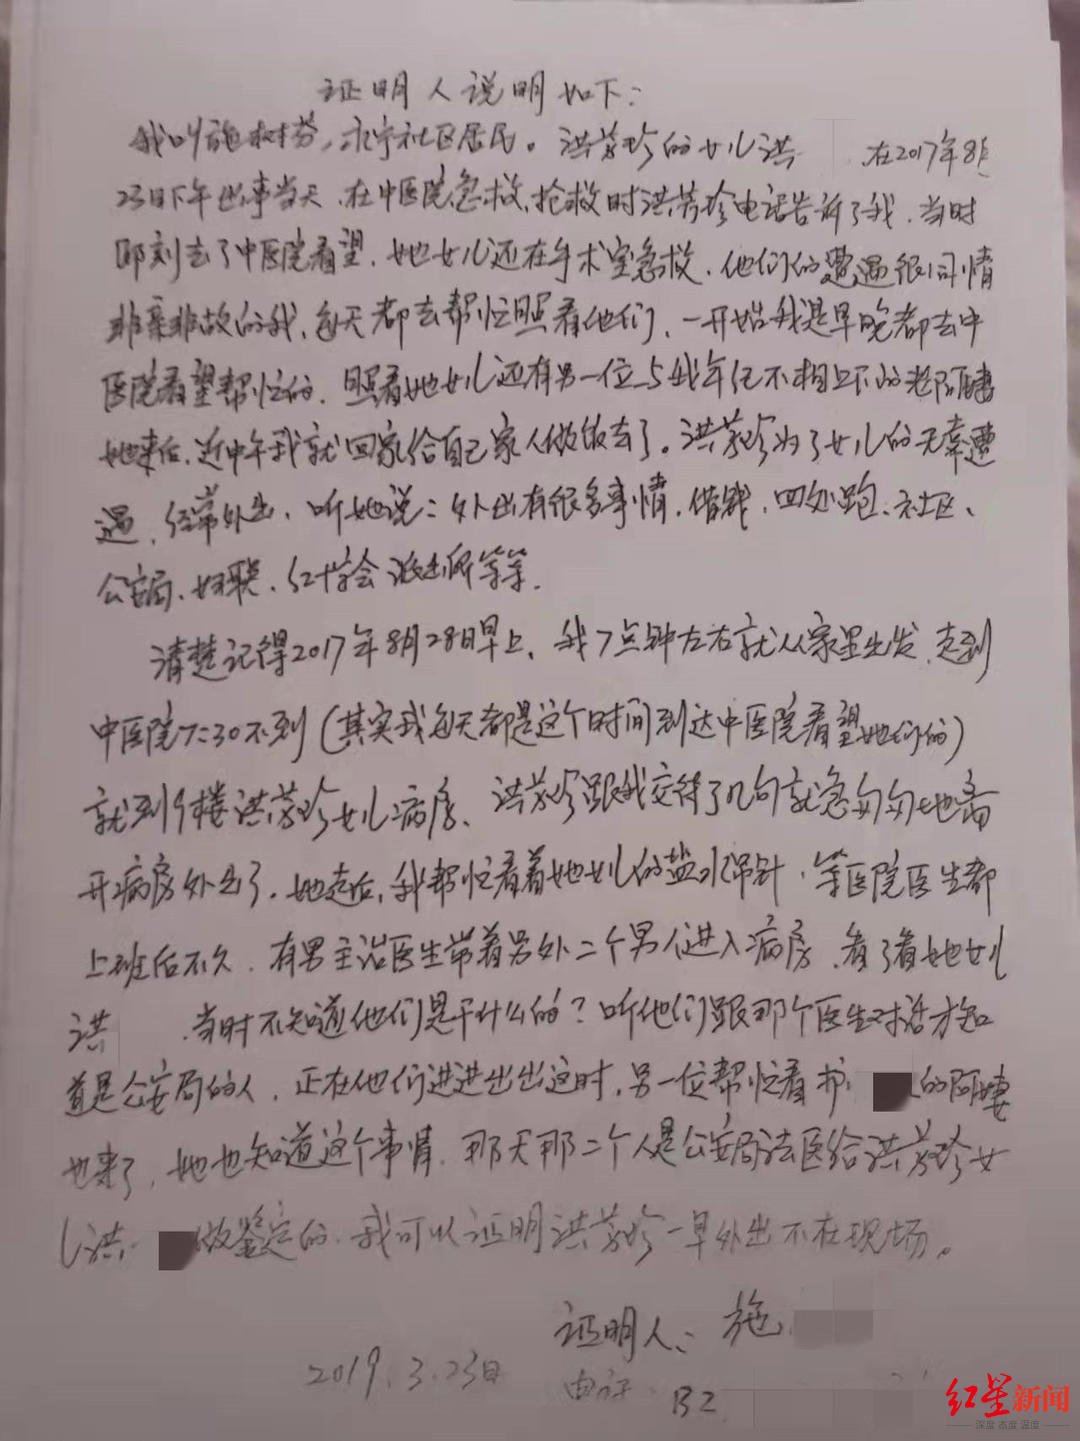 证明人说明如下：
我叫施树芬，永宁社区居民。洪芳珍的女儿洪 在2017年8月
23日下午出事当天，在中医院急救，抢救时洪芳珍电话告诉了我，当时
即刻去了中医院看望，她女儿还在手术室急救，他们的遭遇很同情
非亲非故的我，每天都去帮忙照看他们，一开始我是早晚都去中
医院看望帮忙的，照看她女儿还有另一位与我年纪不相上下的老阿姨
她来后，近中午我就回家给自己家人做饭去了。洪芳珍为了女儿的无辜遭
遇，经常外出，听她说：外出有很多事情，借钱，四处跑、社区、
公安局、妇联、红十字会派出所等等.
请楚记得2017年8月28日早上，我7点钟左右就从家里出发，走到
中医院7:30不到（其实我每天都是这个时间到达中医院看望她们的）
就到9楼洪芳珍女儿病房、洪芳珍跟我交待了几句就急匆匆地离
开病房外出了，她走后，我帮忙看着她女儿的盐水吊针，等医院医生都
上班后不久，有男主治医生带着另外二个男人进入病房，看了看她女儿
洪 ，当时不知道他们是干什么的？听他们跟那个医生对话才知
道是公安局的人，正在他们进进出出这时，另一位帮忙看护 的阿姨
也来了，她也知道这个事情，那天那二个人是公安局法医给洪芳珍女
儿洪 做鉴定的，我可以证明洪芳珍一早外出不在现场。
证明人：施
2019.3.23日
电话 132
红星新闻
深度 态度 温度